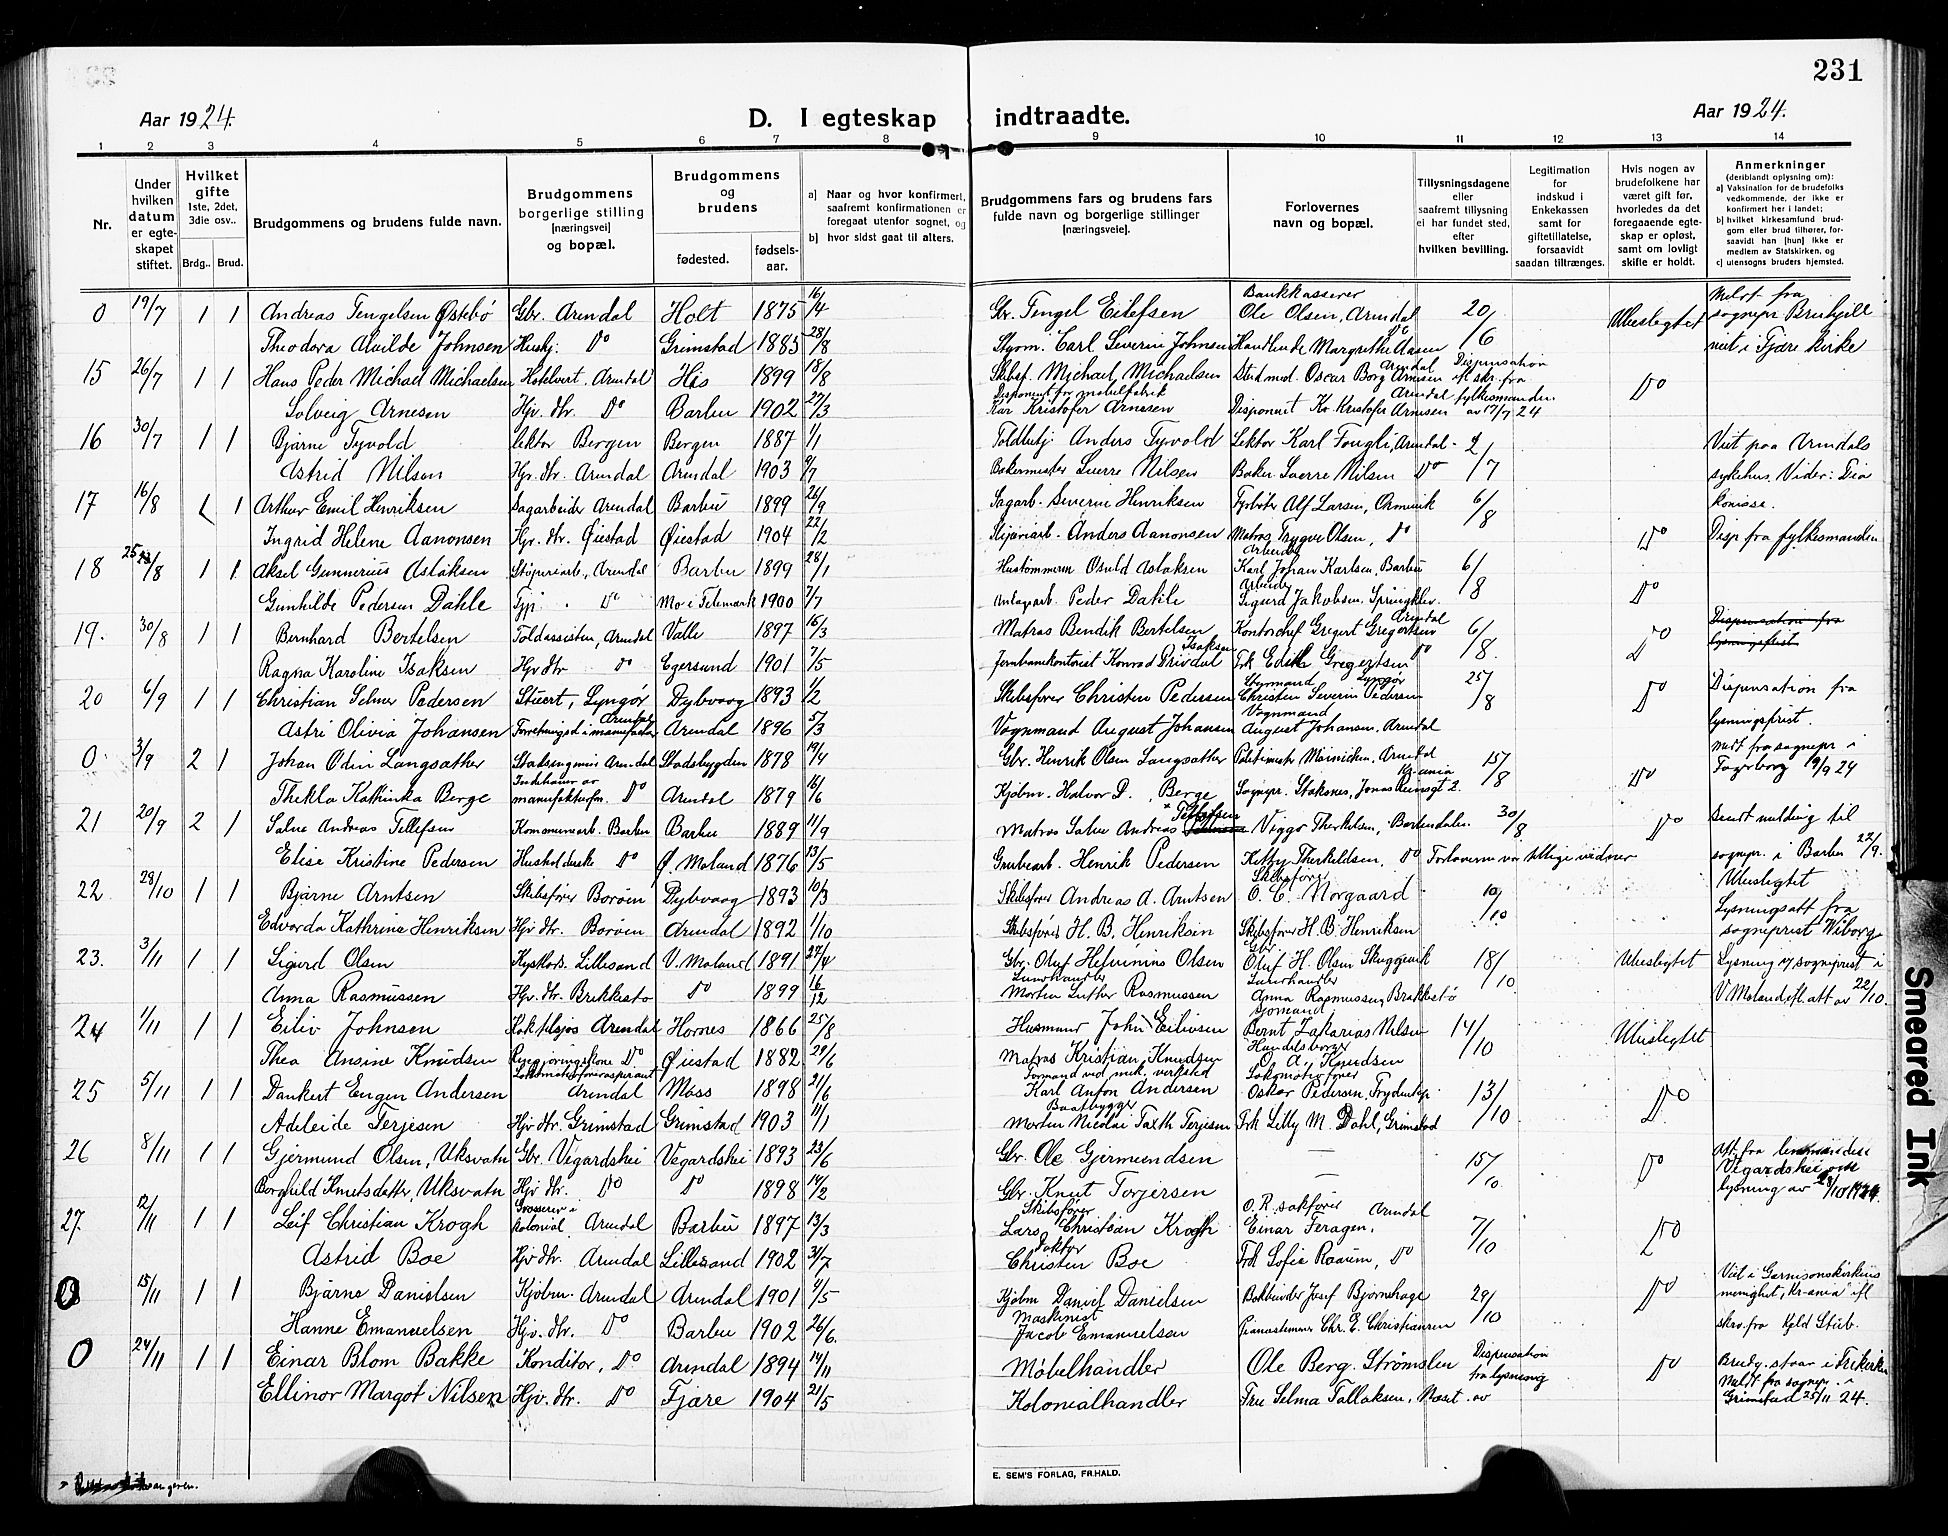 231
Aar 1924.
D. I egteskap indtraadte.
Aar 1924.
1 2 3 4 5 6 7 8 9 10 11 12 13 14
Nr.
Under hvilken datum er egteskapet stiftet.
Hvilket gifte 1ste, 2det, 3die osv..
Brdg.. Brud.
Brudgommens og brudens fulde navn.
Brudgommens borgerlige stilling [næringsvei] og bopæl.
Brudgommens og brudens
fødested. fødselsaar.
a) Naar og hvor konfirmert, saafremt konfirmationen er foregaat utenfor sognet, og
b) hvor sidst gaat til alters.
Brudgommens fars og brudens fars fulde navn og borgerlige stillinger [næringsveie].
Forlovernes navn og bopæl.
Tillysningsdagene eller saafremt tillysning ei har fundet sted, efter hvilken bevilling.
Legitimation for indskud i Enkekassen samt for giftetillatelse, forsaavidt saadan tiltrænges.
Hvis nogen av brudefolkene har været gift før, hvorledes da det foregaaende egteskap er opløst, samt om lovligt skifte er holdt.
Anmerkninger (deriblandt oplysning om):
a) Vaksination for de brudefolks vedkommende, der ikke er konfirmert her i landet;
b) hvilket kirkesamfund brudgom eller brud tilhører, forsaavidt han [hun] ikke er medlem av Statskirken, og
c) utensogns bruders hjemsted.
0 19/7 1 1 Andreas Tengelsen Østebø Gbr. Arendal Holt 1875 16/4 Gbr. Tengel Eilefsen Bankkasserer Ole Olsen, Arendal 20/6 Ubeslegtet
Theodora Alvilde Johnsen Huskj. Do Grimstad 1885 28/8 Styrm. Carl Severin Johnsen Handlende Margrethe Aasen Do viet i Fjære kirke
15 26/7 1 1 Hans Peder Michael Michaelsen Hotelvert. Arendal His 1899 18/8 Skibsf. Michael Michaelsen Stud. med. Oscar Borg Arnesen Arendal Dispensation efl skr. fra Do
Solveig Arnesen Hjv. dtr. Do Barbu 1902 27/3 Disponent for møbelfabrik Kar Kristofer Arnesen Disponent Kr Kristofer Arnesen Arendal fylkesmanden av 17/7 24
16 30/7 1 1 Bjarne Tyvold Lektor Bergen Bergen 1887 1/1 Toldbetj Anders Tyvold Lektor Karl Fongli, Arendal 2/7 Viet paa Arendals
Astrid Nilsen Hjv. dtr. Arendal Arendal 1903 Bakermester Sverre Nilsen Baker Sverre Nilsen Do sykehus.
17 16/8 1 Arthur Emil Henriksen Sagarbeider Arendal Barbu 1899 26/9 Sagarb. Severin Henriksen Fyrbøter Alf Larsen, 6/8
Ingrid Helene Aanonsen Hjv. dtr. Øiestad Øiestad 1904 22/2 Anders Aanonsen Matros Trygve Olsen, Do Do Disp fra fylkesmanden
18 25/8 1 1 Aksel Gunnerius Aslaksen Støperiarb., Arendal Barbu 1899 28/1 Hustømmerm Osuld Aslaksen Arbeider Karl Johan Karlsen, Barbu 6/8
Gunhilde Pedersen Dahle Tjp. Do Mo i Telemark 1900 7/7 Peder Dahle Arbeider Sigurd Jakobsen. Springklev. Do
19. 30/8 1 1 Bernhard Bertelsen Toldassistent, Arendal Valle 1897 16/3 Matros Bendik Bertelsen Kontorchef Gregert Gregertsen Arendal 6/8 Do Dispensation fra lysningsfrist
Ragna Karoline Isaksen Hjv dtr Do Egersund 1901 7/5 Jernbanekontorist Konrad Privdal Isaksen Frk Edith Gregertsen Do
20 6/9 1 1 Christian Selmer Pedersen Stuert, Lyngør Dybvaag 1893 1/2 Skibsfører Christen Pedersen Styrmand Lyngør Christen Severin Pedersen 25/8 Do Dispensation fra
Astri Olivia Johansen Forretningsd i manufactur Arendal Arendal 1896 5/3 Vognmand August Johansen Vognmand August Johansen, Arendal lysningsfrist.
0 3/9 2 1 Johan Odin Langsæther Arendal Stadsbygden 1878 19/4 Gbr. Henrik Olsen Langsæther Arendal 15/8 Do Meldt fra sognepr i Fagerborg 9/9 24
Thekla Kathinka Berge Indehaver av manufakturfor. Do Arendal 1879 16/6 Kjøbm. Halvor P. Berge Sognepr. Staksnes, Jonas Reinsgt 2. Kr.ania
21 20/9 2 1 Salve Andreas Tellefsen Kommunearb. Barbu Barbu 1889 11/9 Matros Salve Andreas Tellefsen Viggo Therkelsen, 30/8 Do Sendt melding til
Elise Kristine Pedersen Husholderske Do Ø. Moland 1876 13/5 Grubearb. Henrik Pedersen Kitty Therkeldsen, Do Forloverne var tillige vidner sognepr. i Barbu 22/9.
22 28/10 1 1 Bjarne Arntsen Skibsfører Borøen Dybvaag 1893 10/3 Skibsfører Andreas A. Arntsen Skibsfører O. C. Norgaard 10/10 Ubeslegtet
Edvarda Kathrine Henriksen Hjv dtr. Borøen Arendal 1892 1/10 Skibsfører H. B. Henriksen Skibsfører H. B. Henriksen Lysningsatt fra sogneprest Wiborg
23. 3/11 1 1 Sigurd Olsen Lillesand V. Moland 1891 27/4 Gbr. Oluf Olsen Gbr Oluf H. Olsen Skuggevik 18/10 Ubeslegtet Lysning v/ sogneprest i
Anna Rasmussen Hjv. dtr. Brekkestø Do 1899 16/12 Morten Luther Rasmussen Anna Rasmussen, Brekkestø V. Moland efl. att av 22/10.
24 1/11 1 1 Eiliv Johnsen Arendal Hornes 1866 25/8 Husmand John Eilivsen Sjømand Bernt Zakarias Nilsen 14/10 Ubeslegtet
Thea Ansine Knudsen Rengjøringskone Do Øiestad 1882 29/6 Matros Kristian Knudsen Handelsborger O. A. Knudsen
25 5/11 1 1 Dankert Eugen Andersen Lokomotivføreraspirant Arendal Moss 1898 21/6 Formand ved mek. verksted Karl Anton Andersen Lokomotivfører Oskar Pedersen, 13/10 Do
Adeleide Terjesen Hjv dtr. Grimstad Grimstad 1903 11/1 Baatbygger Morten Nicolai Taxth Terjesen Frk Lilly M. Dahl, Grimstad
26 8/11 1 1 Gjermund Olsen, Uksvatn Gbr. Vegardshei Vegardshei 1893 23/6 Gbr. Ole Gjermundsen — 15/10 Do Att. fra lensmanden i Vegardshei om
Borghild Knutsdatter, Uksvatn Hjv dtr. Do Do 1898 14/2 Gbr. Knut Torjersen — lysning av 28/10 1924.
27. 12/11 1 1 Leif Christian Krogh Grosserer i kolonial Arendal Barbu 1897 13/3 Skibsfører Lars Christian Krogh O. R. sakfører Arendal Einar Feragen. 7/10 Do
Astrid Boe Hjv dtr. Arendal Lillesand 1902 31/7 Doktor Christen Boe Frk Sofie Raaum, Do
0 15/11 1 1 Bjarne Danielsen Kjøbm. Arendal Arendal 1901 4/5 Kjøbm Daniel Danielsen Bokbinder Josef Bjørnshage 29/10 Do Viet i Garnisonskirkens menighet, Kr-ania efl
Hanne Emanuelsen Hjv. dtr. Do Barbu 1902 26/6. Maskinist Jacob Emanuelsen Pianostemmer Chr. E. Christiansen skr. fra Kjeld Stub.
0 24/11 1 1 Einar Blom Bakke Konditor, Do Arendal 1894 14/11 Møbelhandler Ole Berg. Strømslen Dispensation fra lysning Do Brudg. staar i Frikirken
Ellinor Margot Nilsen Hjv. dtr. Do Fjære 1904 21/5 Kolonialhandler Fru Selma Tallaksen, Næset av Meldt fra sognepr. i Grimstad 25/11 24.
E. SEM'S FORLAG, FR.HALD.
Smeared Ink